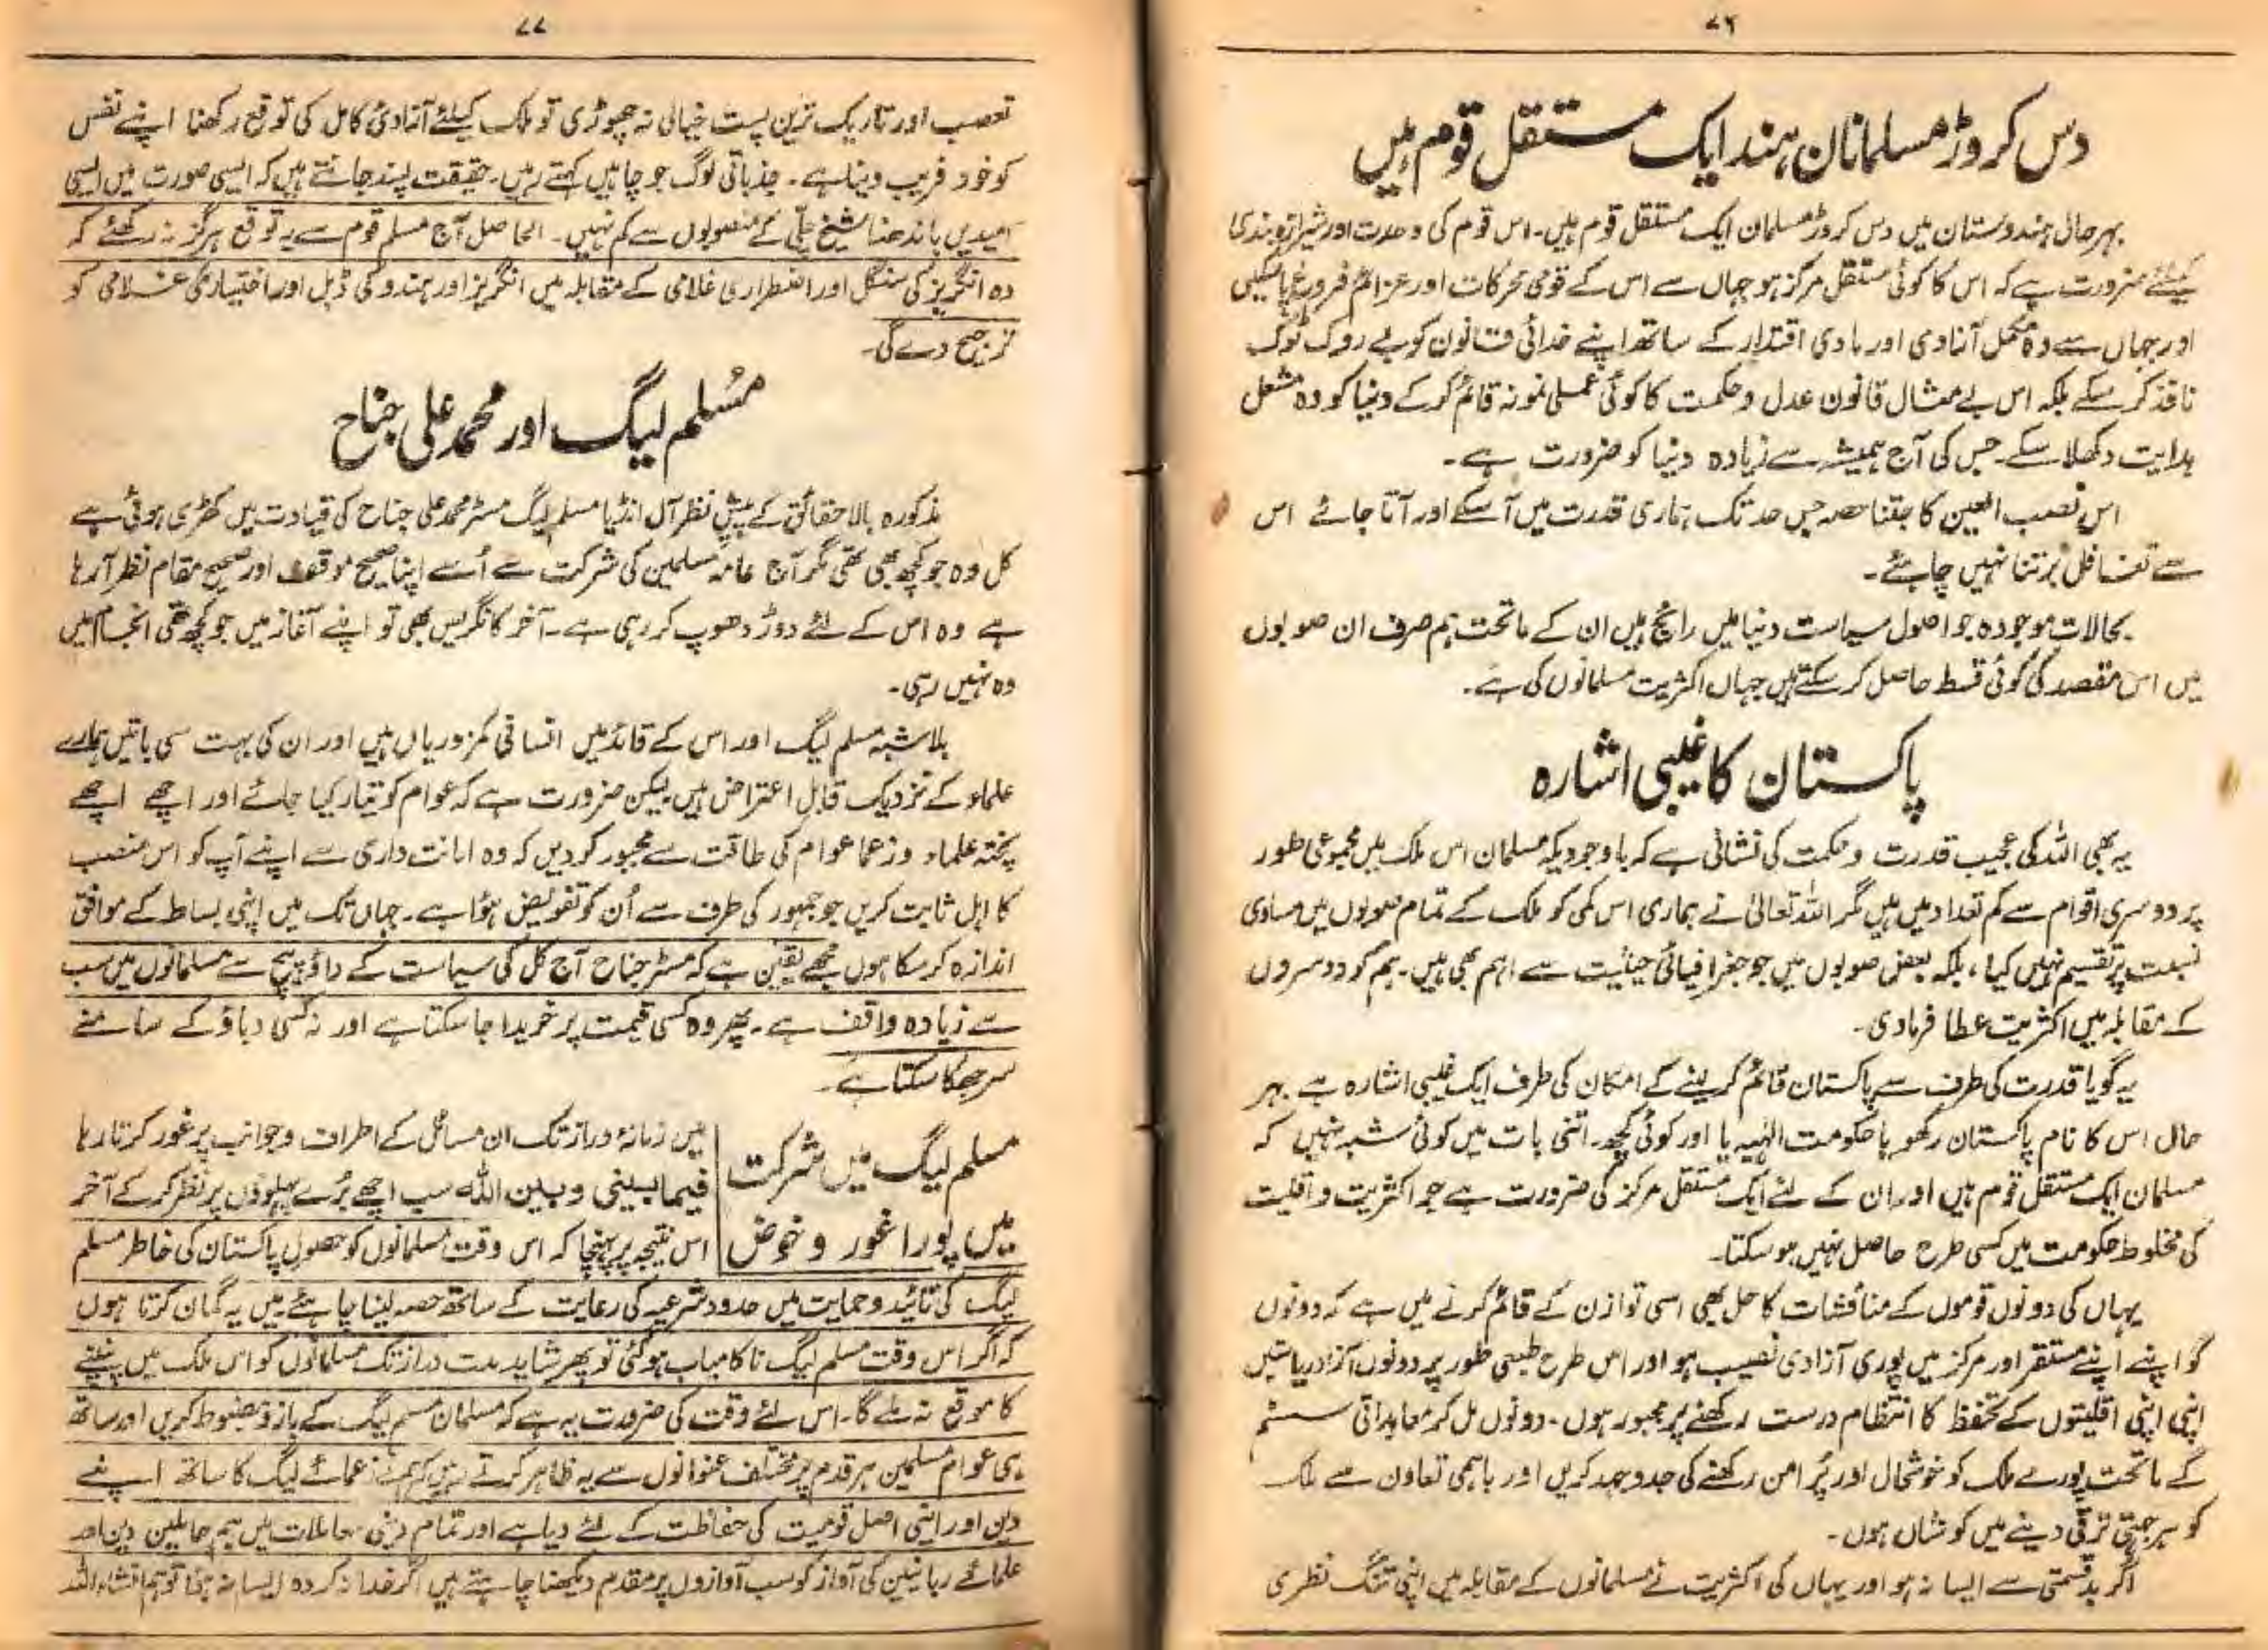 ۷۶
دس کروڑ مسلمانان ہند ایک مستقل قوم ہیں
بہرحال ہندوستان میں دس کروڑ مسلمان ایک مستقل قوم ہیں۔ اس قوم کی وحدت اور شیرازہ بندی
کیلئے ضرورت ہے کہ اس کا کوئی مستقل مرکز ہو جہاں سے اس کے قومی محرکات اور عزائم فروغ پا سکیں
اور جہاں سے وہ مکمل آزادی اور مادی اقتدار کے ساتھ اپنے خدائی قانون کو بے روک ٹوک
نافذ کر سکے بلکہ اس بے مثال قانون عدل و حکمت کا کوئی عملی نمونہ قائم کر کے دنیا کو وہ مشعل
ہدایت دکھلا سکے۔ جس کی آج ہمیشہ سے زیادہ دنیا کو ضرورت ہے۔
اس نصب العین کا جتنا حصہ جس حد تک ہماری قدرت میں آ سکے اور آتا جائے اس
سے تغافل برتنا نہیں چاہئے۔
بحالات موجودہ جو اصول سیاست دنیا میں رائج ہیں ان کے ماتحت ہم صرف ان صوبوں
میں اس مقصد کی کوئی قسط حاصل کر سکتے ہیں جہاں اکثریت مسلمانوں کی ہے۔
پاکستان کا غیبی اشارہ
یہ بھی اللہ کی عجیب قدرت و حکمت کی نشانی ہے کہ باوجودیکہ مسلمان اس ملک میں مجموعی طور
پر دوسری اقوام سے کم تعداد میں ہیں مگر اللہ تعالیٰ نے ہماری اس کمی کو ملک کے تمام صوبوں میں مساوی
نسبت پر تقسیم نہیں کیا، بلکہ بعض صوبوں میں جو جغرافیائی حیثیت سے اہم بھی ہیں۔ ہم کو دوسروں
کے مقابلہ میں اکثریت عطا فرمادی۔
یہ گویا قدرت کی طرف سے پاکستان قائم کر لینے کے امکان کی طرف ایک غیبی اشارہ ہے بہر
حال اس کا نام پاکستان رکھو یا حکومت الٰہیہ یا اور کوئی کچھ۔ اتنی بات میں کوئی شبہ نہیں کہ
مسلمان ایک مستقل قوم ہیں اور ان کے لئے ایک مستقل مرکز کی ضرورت ہے جو اکثریت و اقلیت
کی مخلوط حکومت میں کسی طرح حاصل نہیں ہو سکتا۔
یہاں کی دونوں قوموں کے مناقشات کا حل بھی اسی توازن کے قائم کرنے میں ہے کہ دونوں
کو اپنے اپنے مستقر اور مرکز میں پوری آزادی نصیب ہو اور اس طرح طبعی طور پر دونوں آزاد ریاستیں
اپنی اپنی اقلیتوں کے تحفظ کا انتظام درست رکھنے پر مجبور ہوں۔ دونوں مل کر معاہداتی سسٹم
کے ماتحت پورے ملک کو خوشحال اور پُر امن رکھنے کی جدوجہد کریں اور باہمی تعاون سے ملک
کو ہر جہتی ترقی دینے میں کوشاں ہوں۔
اگر بدقسمتی سے ایسا نہ ہو اور یہاں کی اکثریت نے مسلمانوں کے مقابلہ میں اپنی تنگ نظری
۷۷
تعصب اور تاریک ترین پست خیالی نہ چھوڑی تو ملک کیلئے آزادیٔ کامل کی توقع رکھنا اپنے نفس
کو خود فریب دینا ہے۔ جذباتی لوگ جو چاہیں کہتے رہیں۔ حقیقت پسند جانتے ہیں کہ ایسی صورت میں ایسی
امیدیں باندھنا شیخ چلّی کے منصوبوں سے کم نہیں۔ الحاصل آج مسلم قوم سے یہ توقع ہرگز نہ رکھئے کہ
وہ انگریز کی سنگل اور اضطراری غلامی کے مقابلہ میں انگریز اور ہندو کی ڈبل اور اختیاری غلامی کو
ترجیح دے گی۔
مُسلم لیگ اور محمد علی جناح
مذکورہ بالا حقائق کے پیش نظر آل انڈیا مسلم لیگ مسٹر محمد علی جناح کی قیادت میں کھڑی ہوئی ہے
کل وہ جو کچھ بھی تھی مگر آج عامہ مسلمین کی شرکت سے اُسے اپنا صحیح موقف اور صحیح مقام نظر آ رہا
ہے وہ اس کے لئے دوڑ دھوپ کر رہی ہے۔ آخر کانگریس بھی تو اپنے آغاز میں جو کچھ تھی انجام میں
وہ نہیں رہی۔
بلاشبہ مسلم لیگ اور اس کے قائد میں انسانی کمزوریاں ہیں اور ان کی بہت سی باتیں ہمارے
علماء کے نزدیک قابل اعتراض ہیں لیکن ضرورت ہے کہ عوام کو تیار کیا جائے اور اچھے اچھے
پختہ علماء و زعما عوام کی طاقت سے مجبور کر دیں کہ وہ امانت داری سے اپنے آپ کو اس منصب
کا اہل ثابت کریں جو جمہور کی طرف سے اُن کو تفویض ہوا ہے۔ جہاں تک میں اپنی بساط کے موافق
اندازہ کر سکا ہوں مجھے یقین ہے کہ مسٹر جناح آج کل کی سیاست کے داؤ پیچ سے مسلمانوں میں سب
سے زیادہ واقف ہے۔ پھر وہ کسی قیمت پر خریدا جا سکتا ہے اور نہ کسی دباؤ کے سامنے
سر جھکا سکتا ہے۔
مسلم لیگ میں شرکت
میں پورا غور و خوض
میں زمانۂ دراز تک ان مسائل کے اطراف و جوانب پر غور کرتا رہا
فیما بینی و بین اللہ سب اچھے بُرے پہلوؤں پر نظر کر کے آخر
اس نتیجہ پر پہنچا کہ اس وقت مسلمانوں کو حصول پاکستان کی خاطر مسلم
لیگ کی تائید و حمایت میں حدود شرعیہ کی رعایت کے ساتھ حصہ لینا چاہئے۔ میں یہ گمان کرتا ہوں
کہ اگر اس وقت مسلم لیگ ناکامیاب ہو گئی تو پھر شاید مدت دراز تک مسلمانوں کو اس ملک میں پنپنے
کا موقع نہ ملے گا۔ اس لئے وقت کی ضرورت یہ ہے کہ مسلمان مسلم لیگ کے بازو مضبوط کریں اور ساتھ
ہی عوام مسلمین ہر قدم پر مختلف عنوانوں سے یہ ظاہر کرتے رہیں کہ ہم نے زعمائے لیگ کا ساتھ اپنے
دین اور اپنی اصل قومیت کی حفاظت کے لئے دیا ہے اور تمام دینی معاملات میں ہم حاملین دین اور
علمائے ربانیین کی آواز کو سب آوازوں پر مقدم دیکھنا چاہتے ہیں اگر خدا نہ کردہ ایسا نہ ہوا تو ہم انشاء اللہ